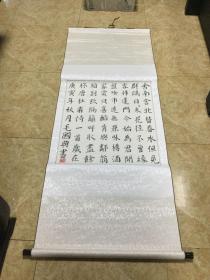 舍南舍北皆春水但見
群鷗日日来花徑不曾緣
客掃蓬門今始為君開
盤飧市遠無兼味樽酒
家貧只舊醅肯與鄰翁
相對飲隔籬呼取盡餘
杯唐杜甫詩一首歲在
庚寅年秋月毛國典書